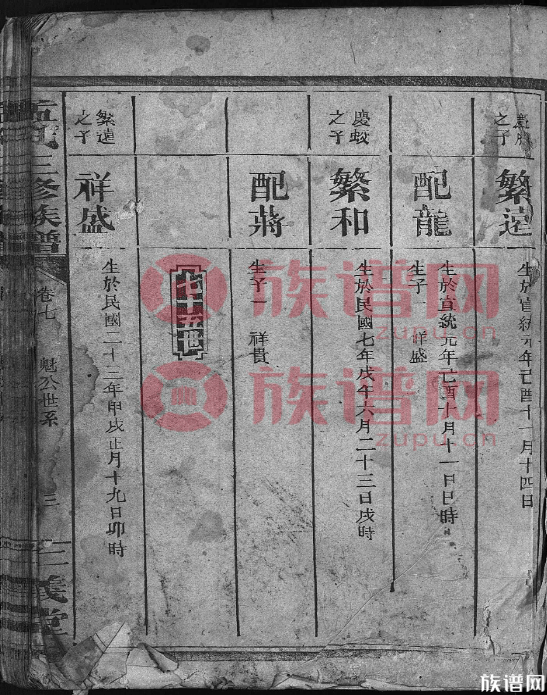 之子
繁逞
生於宣統元年己酉十一月十四日
配龍
生於宣統元年己酉十月十一日巳時
生子一 祥盛
慶蚊之子
繁和
生於民國七年戊午六月二十三日戌時
配蔣
生子一 祥貴
七十五世
繁逞之子
祥盛
生於民國二十三年甲戌正月十九日卯時
氏三修族譜
卷七
魁公世系
三
三義堂
族谱网
zupu.cn
族谱网
zupu.cn
族谱网